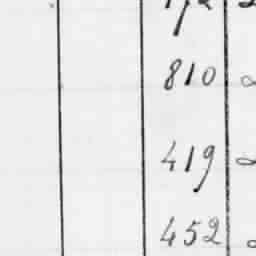 810
419
452